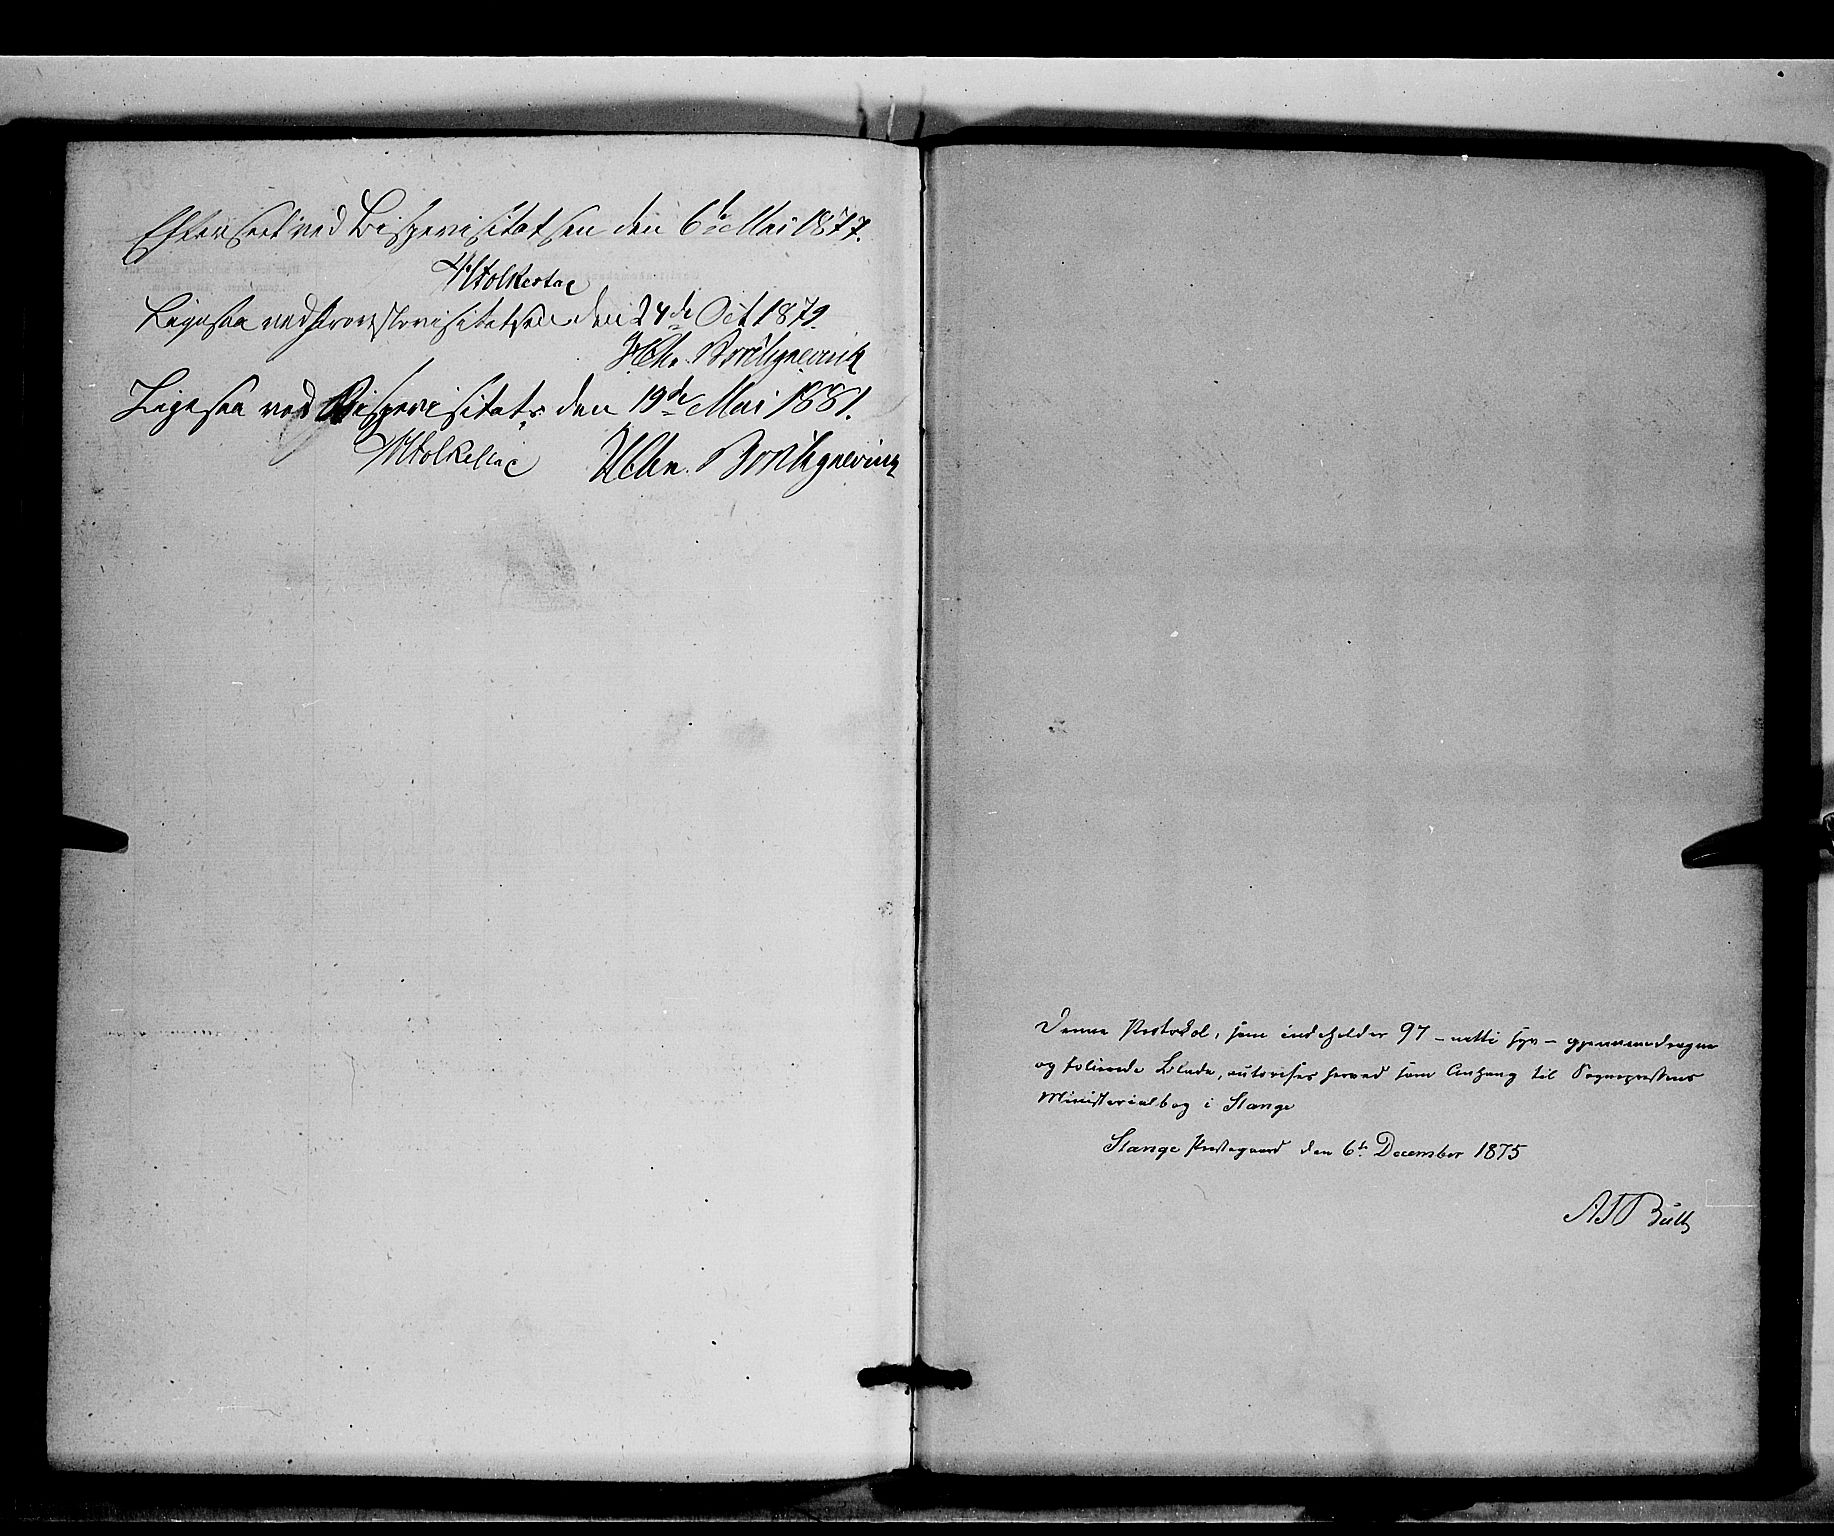 Efterseet ved Bispevisitatsen den 6te Mai 1877.
Folkestad
Ligesaa ved Provstevisitatsen den 24de Oct 1879.
H Chr. Borchgrevink
Ligesaa ved Bispevisitats den 19de Mai 1881.
Folkestad H Chr. Borchgrevink
Denne Protokol, som indeholder 97 - nitti syv - gjennemdragne
og folierede Blade, autorises herved som Anhang til Sognepræstens
Ministerialbog i Stange
Stange Præstegaard den 6te December 1875
Bull